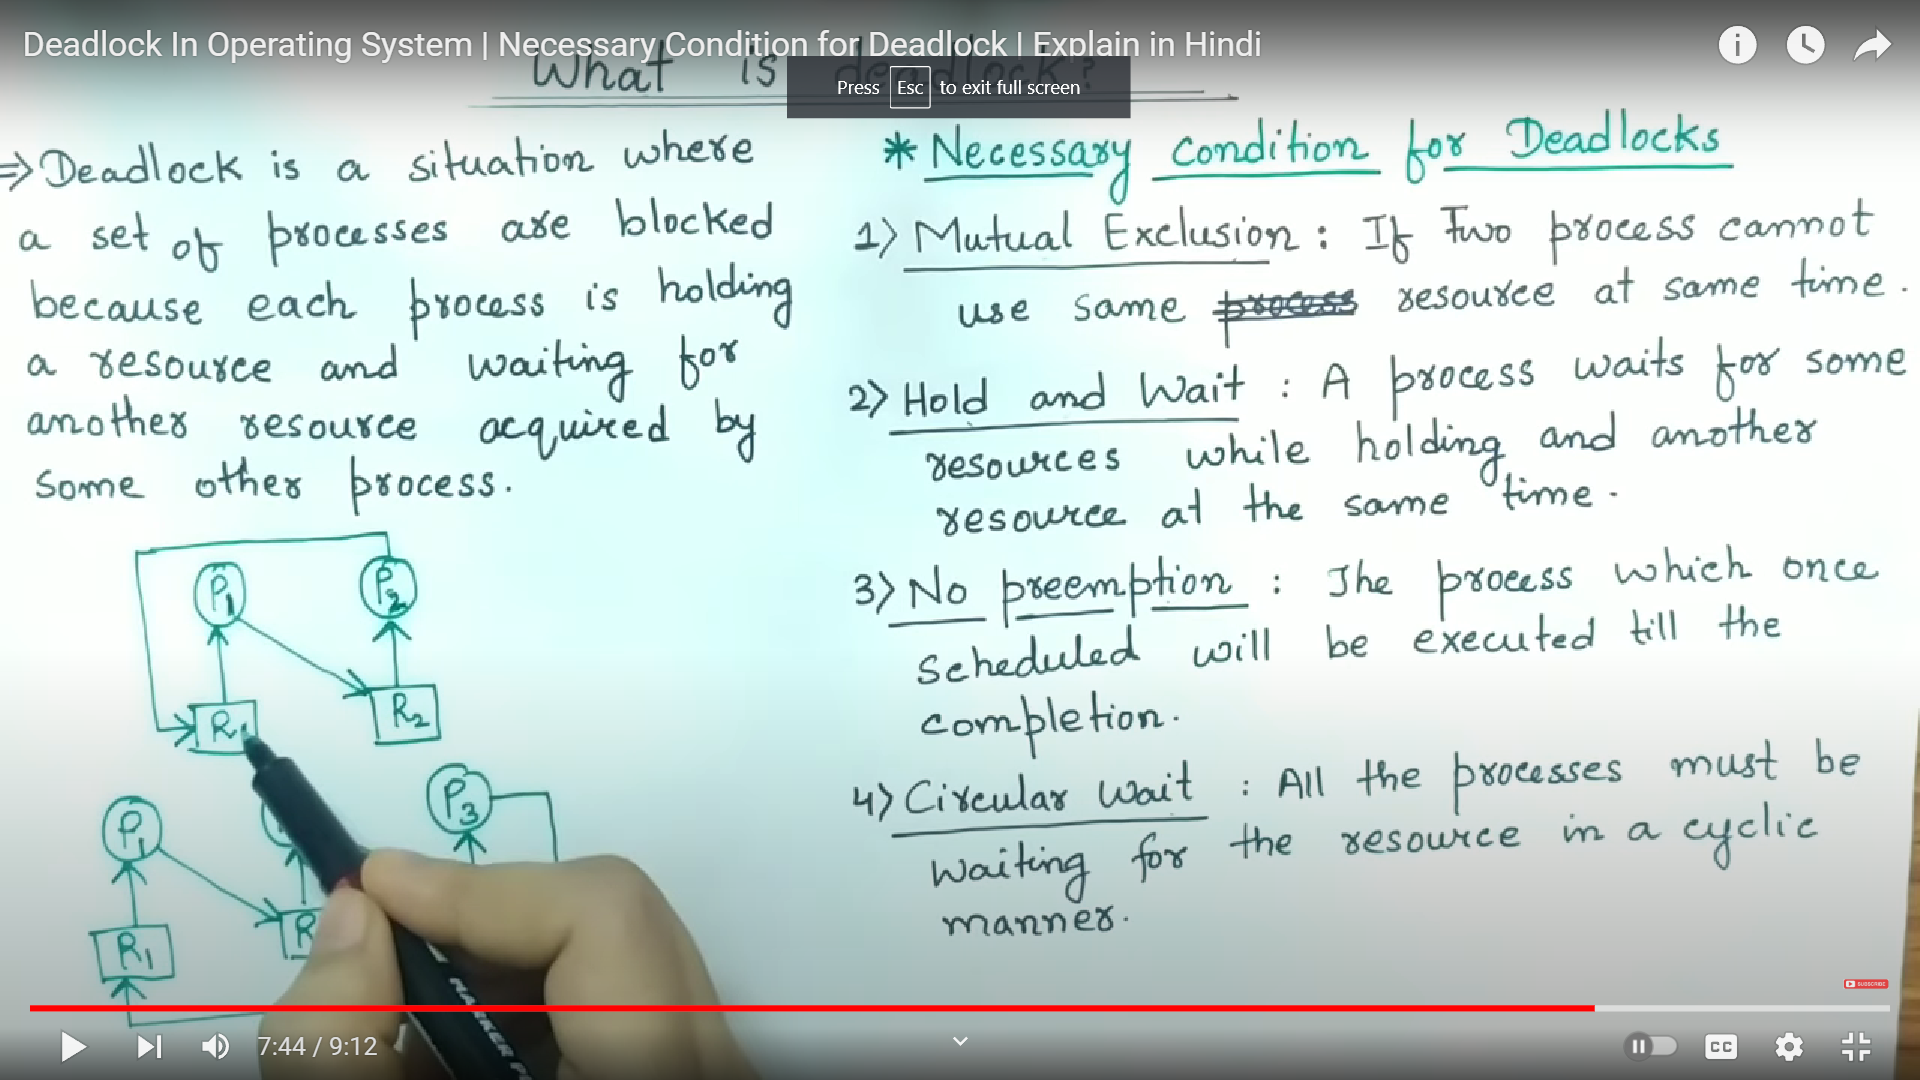 Deadlock In Operating System | Necessary Condition for Deadlock | Explain in Hindi
What is deadlock?
Press Esc to exit full screen
⇒ Deadlock is a situation where
a set of processes are blocked
because each process is holding
a resource and waiting for
another resource acquired by
some other process.
P1 P2
R1 R2
P1 P3
R1 R
* Necessary Condition for Deadlocks
1) Mutual Exclusion : If Two process cannot
use same process resource at same time.
2) Hold and Wait : A process waits for some
resources while holding and another
resource at the same time.
3) No preemption : The process which once
scheduled will be executed till the
completion.
4) Circular Wait : All the processes must be
waiting for the resource in a cyclic
manner.
SUBSCRIBE
7:44 / 9:12
CC